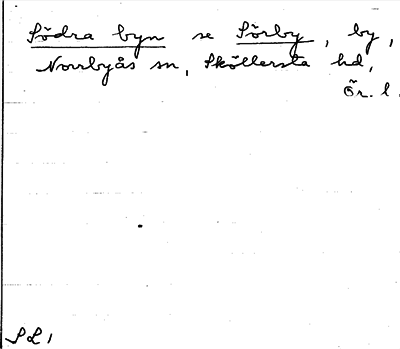 Södra byn se Sörby, by,
Norrbyås sn, Sköllersta hd,
Ör. l.
SL1